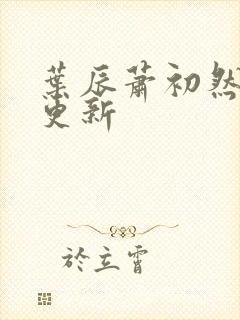 葉辰蕭初然
更新
於立霄